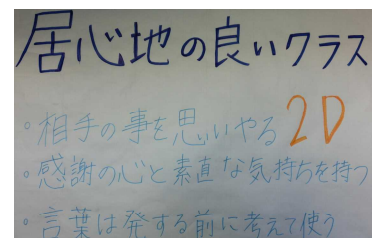 居心地の良いクラス
・相手の事を思いやる 2D
・感謝の心と素直な気持ちを持つ
・言葉は発する前に考えて使う